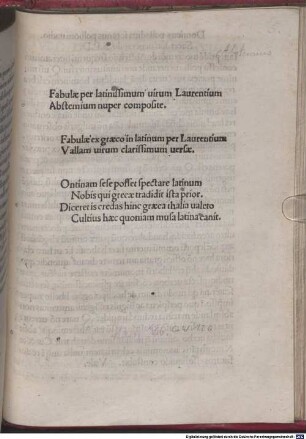 Fabulæ per latinissimum uirum Laurentium
Abstemium nuper composite.
Fabulæ ex græco in latinum per Laurentium
Vallam uirum clarissimum uersæ.
Ontinam sese posset spectare latinum
Nobis qui grecæ tradidit ista prior.
Diceret is credas hinc græca thalia ualeto
Cultius hæc quoniam musa latina canit.